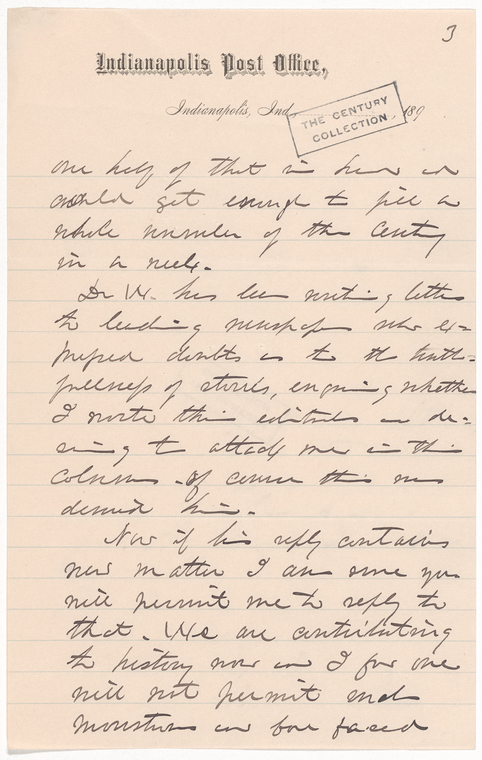 3
Indianapolis Post Office,
Indianapolis, Ind. 189
THE CENTURY
COLLECTION
one half of that in hand we
could get enough to fill a
whole number of the Century
in a week.
Dr W. has been writing letters
to leading newspapers who ex=
pressed doubts as to the truth=
fullness of stories, enquiring whether
I wrote their editorials or de=
siring to attack me in their
columns. Of course this was
denied him.
Now if his reply contains
new matter I am sure you
will permit me to reply to
that. We are contributing
to history now and I for one
will not permit such
monstrous bare faced